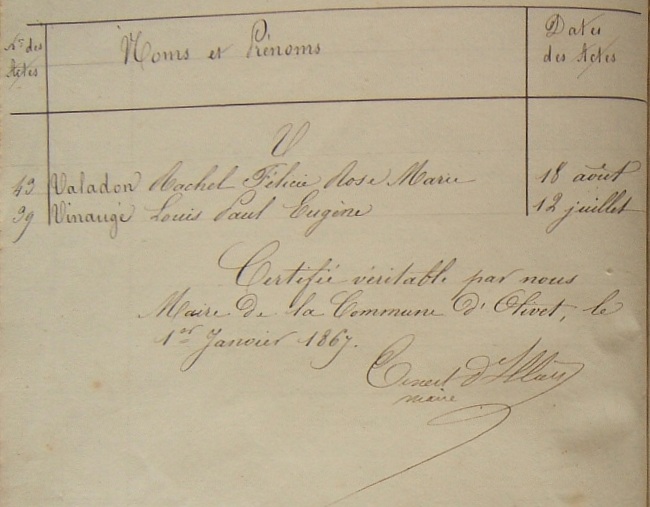 Nos des Actes
Noms et Prénoms
Dates des Actes
V
43 Valadon Rachel Félicie Rose Marie 18 août
39 Vinaugé Louis Paul Eugène 12 juillet
Certifié véritable par nous
Maire de la Commune d'Olivet, le
1er Janvier 1867.
Ernest d'Illiers
maire